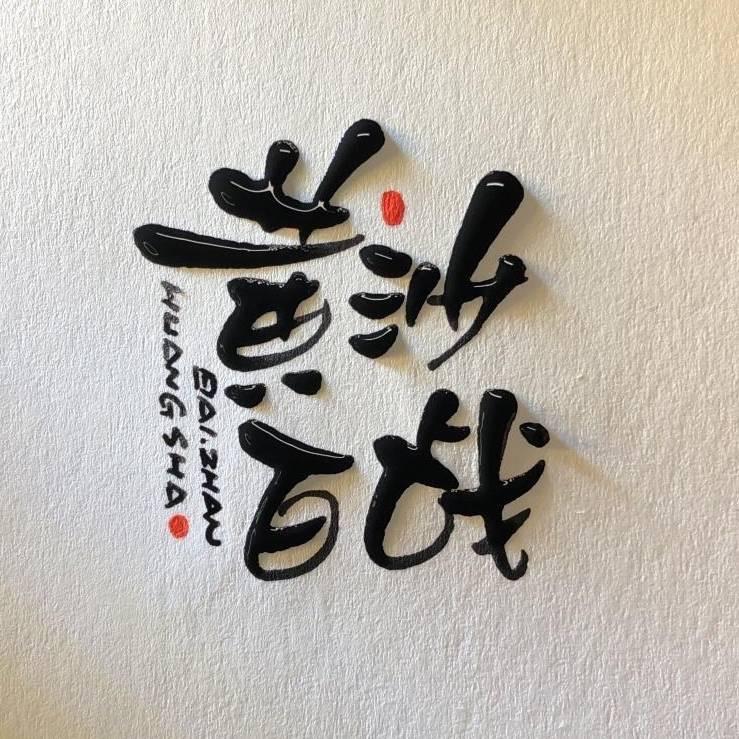 黄沙
百战
HUANGSHA
BAI.ZHAN